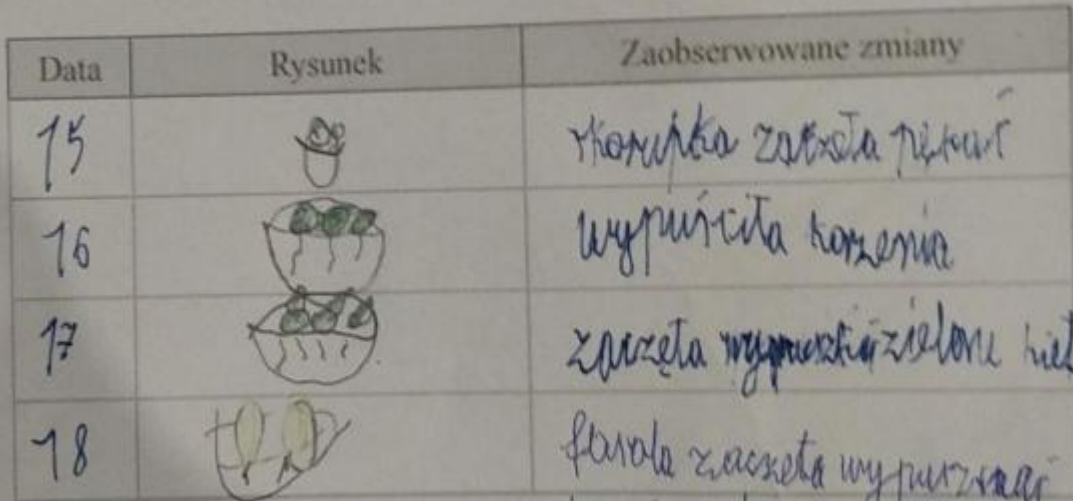 Data Rysunek Zaobserwowane zmiany
15 skorupka zaczeła pękać
16 wypuściła korzenia
17 zaczęła wypuszkać zielone kieł
18 fasola zaczeła wypuszczać